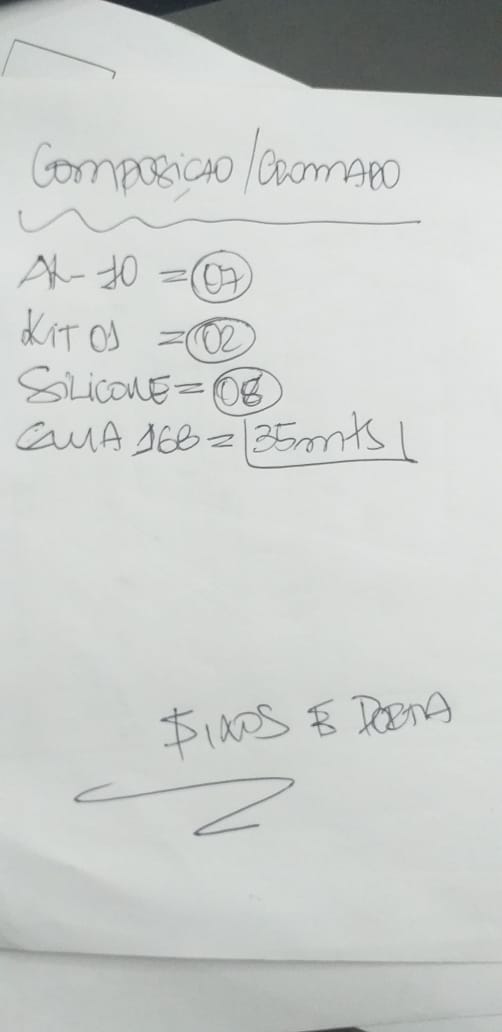 COMPOSIÇÃO/CROMADO
AL-10 = 07
KIT 01 = 02
SILICONE = 08
168 = 35mts
FIXOS E PORTA